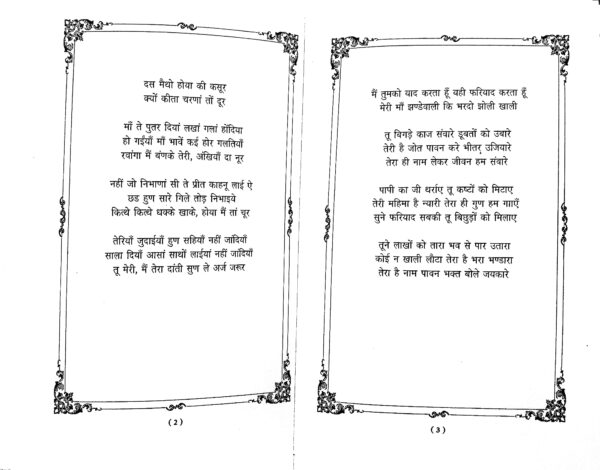 दस मैथो होया की कसूर
क्यों कीता चरणां तों दूर
माँ ते पुतर दियां लखां गलां होंदिया
हो गईंयाँ माँ भावें कई होर गलतियाँ
रवांगा मैं बणके तेरी, अंखियाँ दा नूर
नहीं जो निभाणां सी ते प्रीत काहनू लाई ऐ
छड हुण सारे गिले तोड़ निभाइये
कित्थे कित्थे धक्के खाके, होया मैं तां चूर
तेरियाँ जुदाईयाँ हुण सहियाँ नहीं जांदियाँ
साला दियाँ आसां साथों लाईयां नहीं जांदियाँ
तू मेरी, मैं तेरा दांती सुण ले अर्ज जरूर
(2)
मैं तुमको याद करता हूँ यही फरियाद करता हूँ
मेरी माँ झण्डेवाली कि भरदो झोली खाली
तू बिगड़े काज संवारे डूबतों को उबारे
तेरी है जोत पावन करे भीतर उजियारे
तेरा ही नाम लेकर जीवन हम संवारे
पापी का जी थर्राए तू कष्टों को मिटाए
तेरी महिमा है न्यारी तेरा ही गुण हम गाएँ
सुने फरियाद सबकी तू बिछुड़ों को मिलाए
तूने लाखों को तारा भव से पार उतारा
कोई न खाली लौटा तेरा है भरा भण्डारा
तेरा है नाम पावन भक्त बोले जयकारे
(3)